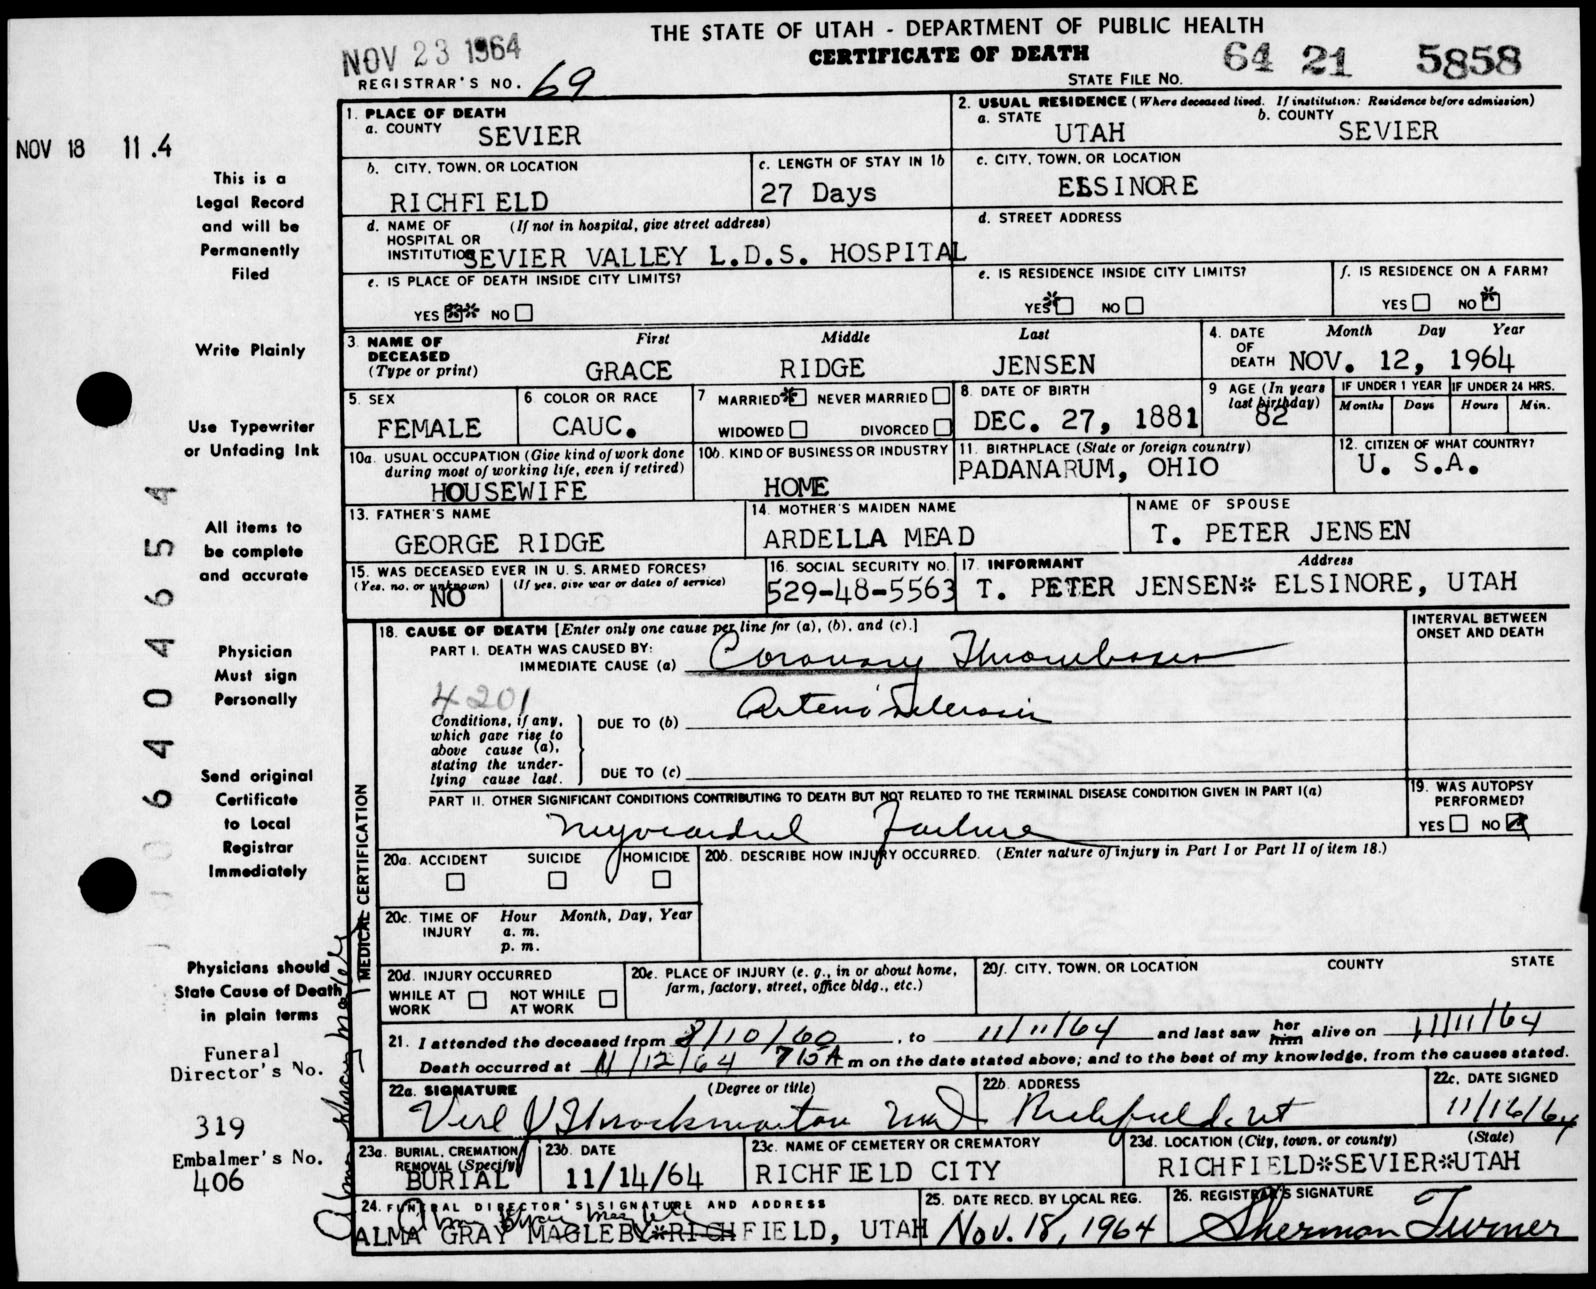 THE STATE OF UTAH - DEPARTMENT OF PUBLIC HEALTH
NOV 23 1964
CERTIFICATE OF DEATH
64 21 5858
REGISTRAR'S NO. 69
STATE FILE NO.
NOV 18 11.4
This is a
Legal Record
and will be
Permanently
Filed
Write Plainly
Use Typewriter
or Unfading Ink
All items to
be complete
and accurate
Physician
Must sign
Personally
Send original
Certificate
to Local
Registrar
Immediately
Physicians should
State Cause of Death
in plain terms
Funeral
Director's No.
319
Embalmer's No.
406
0 6 4 0 4 6 5 4
1. PLACE OF DEATH
a. COUNTY SEVIER
2. USUAL RESIDENCE (Where deceased lived. If institution: Residence before admission)
a. STATE UTAH b. COUNTY SEVIER
b. CITY, TOWN, OR LOCATION RICHFIELD
c. LENGTH OF STAY IN 1b 27 Days
c. CITY, TOWN, OR LOCATION ELSINORE
d. NAME OF HOSPITAL OR INSTITUTION (If not in hospital, give street address)
SEVIER VALLEY L.D.S. HOSPITAL
d. STREET ADDRESS
e. IS PLACE OF DEATH INSIDE CITY LIMITS?
YES NO
e. IS RESIDENCE INSIDE CITY LIMITS?
YES NO
f. IS RESIDENCE ON A FARM?
YES NO
3. NAME OF DECEASED (Type or print)
First Middle Last
GRACE RIDGE JENSEN
4. DATE OF DEATH Month Day Year
NOV. 12, 1964
5. SEX FEMALE
6 COLOR OR RACE CAUC.
7 MARRIED NEVER MARRIED
WIDOWED DIVORCED
8. DATE OF BIRTH DEC. 27, 1881
9 AGE (In years last birthday) 82
IF UNDER 1 YEAR IF UNDER 24 HRS.
Months Days Hours Min.
10a. USUAL OCCUPATION (Give kind of work done during most of working life, even if retired)
HOUSEWIFE
10b. KIND OF BUSINESS OR INDUSTRY
HOME
11. BIRTHPLACE (State or foreign country)
PADANARUM, OHIO
12. CITIZEN OF WHAT COUNTRY?
U. S.A.
13. FATHER'S NAME
GEORGE RIDGE
14. MOTHER'S MAIDEN NAME
ARDELLA MEAD
NAME OF SPOUSE
T. PETER JENSEN
15. WAS DECEASED EVER IN U. S. ARMED FORCES?
(Yes, no, or unknown) (If yes, give war or dates of service)
NO
16. SOCIAL SECURITY NO.
529-48-5563
17. INFORMANT Address
T. PETER JENSEN* ELSINORE, UTAH
MEDICAL CERTIFICATION
18. CAUSE OF DEATH [Enter only one cause per line for (a), (b), and (c).]
INTERVAL BETWEEN ONSET AND DEATH
PART I. DEATH WAS CAUSED BY:
IMMEDIATE CAUSE (a) Coronary Thrombosis
4201
Conditions, if any, which gave rise to above cause (a), stating the underlying cause last.
DUE TO (b) Arteriosclerosis
DUE TO (c)
PART II. OTHER SIGNIFICANT CONDITIONS CONTRIBUTING TO DEATH BUT NOT RELATED TO THE TERMINAL DISEASE CONDITION GIVEN IN PART I(a)
Myocardial Failure
19. WAS AUTOPSY PERFORMED?
YES NO
20a. ACCIDENT SUICIDE HOMICIDE
20b. DESCRIBE HOW INJURY OCCURRED. (Enter nature of injury in Part I or Part II of item 18.)
20c. TIME OF INJURY Hour Month, Day, Year
a. m.
p. m.
20d. INJURY OCCURRED
WHILE AT WORK NOT WHILE AT WORK
20e. PLACE OF INJURY (e. g., in or about home, farm, factory, street, office bldg., etc.)
20f. CITY, TOWN, OR LOCATION COUNTY STATE
21. I attended the deceased from 8/10/60, to 11/11/64 and last saw her him alive on 11/11/64
Death occurred at 11/12/64 715A m on the date stated above; and to the best of my knowledge, from the causes stated.
22a. SIGNATURE (Degree or title)
Verl J Throckmorton MD
22b. ADDRESS
Richfield, Ut
22c. DATE SIGNED
11/16/64
23a. BURIAL, CREMATION REMOVAL (Specify)
BURIAL
23b. DATE
11/14/64
23c. NAME OF CEMETERY OR CREMATORY
RICHFIELD CITY
23d. LOCATION (City, town, or county) (State)
RICHFIELD*SEVIER*UTAH
24. FUNERAL DIRECTOR'S SIGNATURE AND ADDRESS
ALMA GRAY MAGLEBY*RICHFIELD, UTAH
25. DATE RECD. BY LOCAL REG.
Nov. 18, 1964
26. REGISTRAR'S SIGNATURE
Sherman Turner